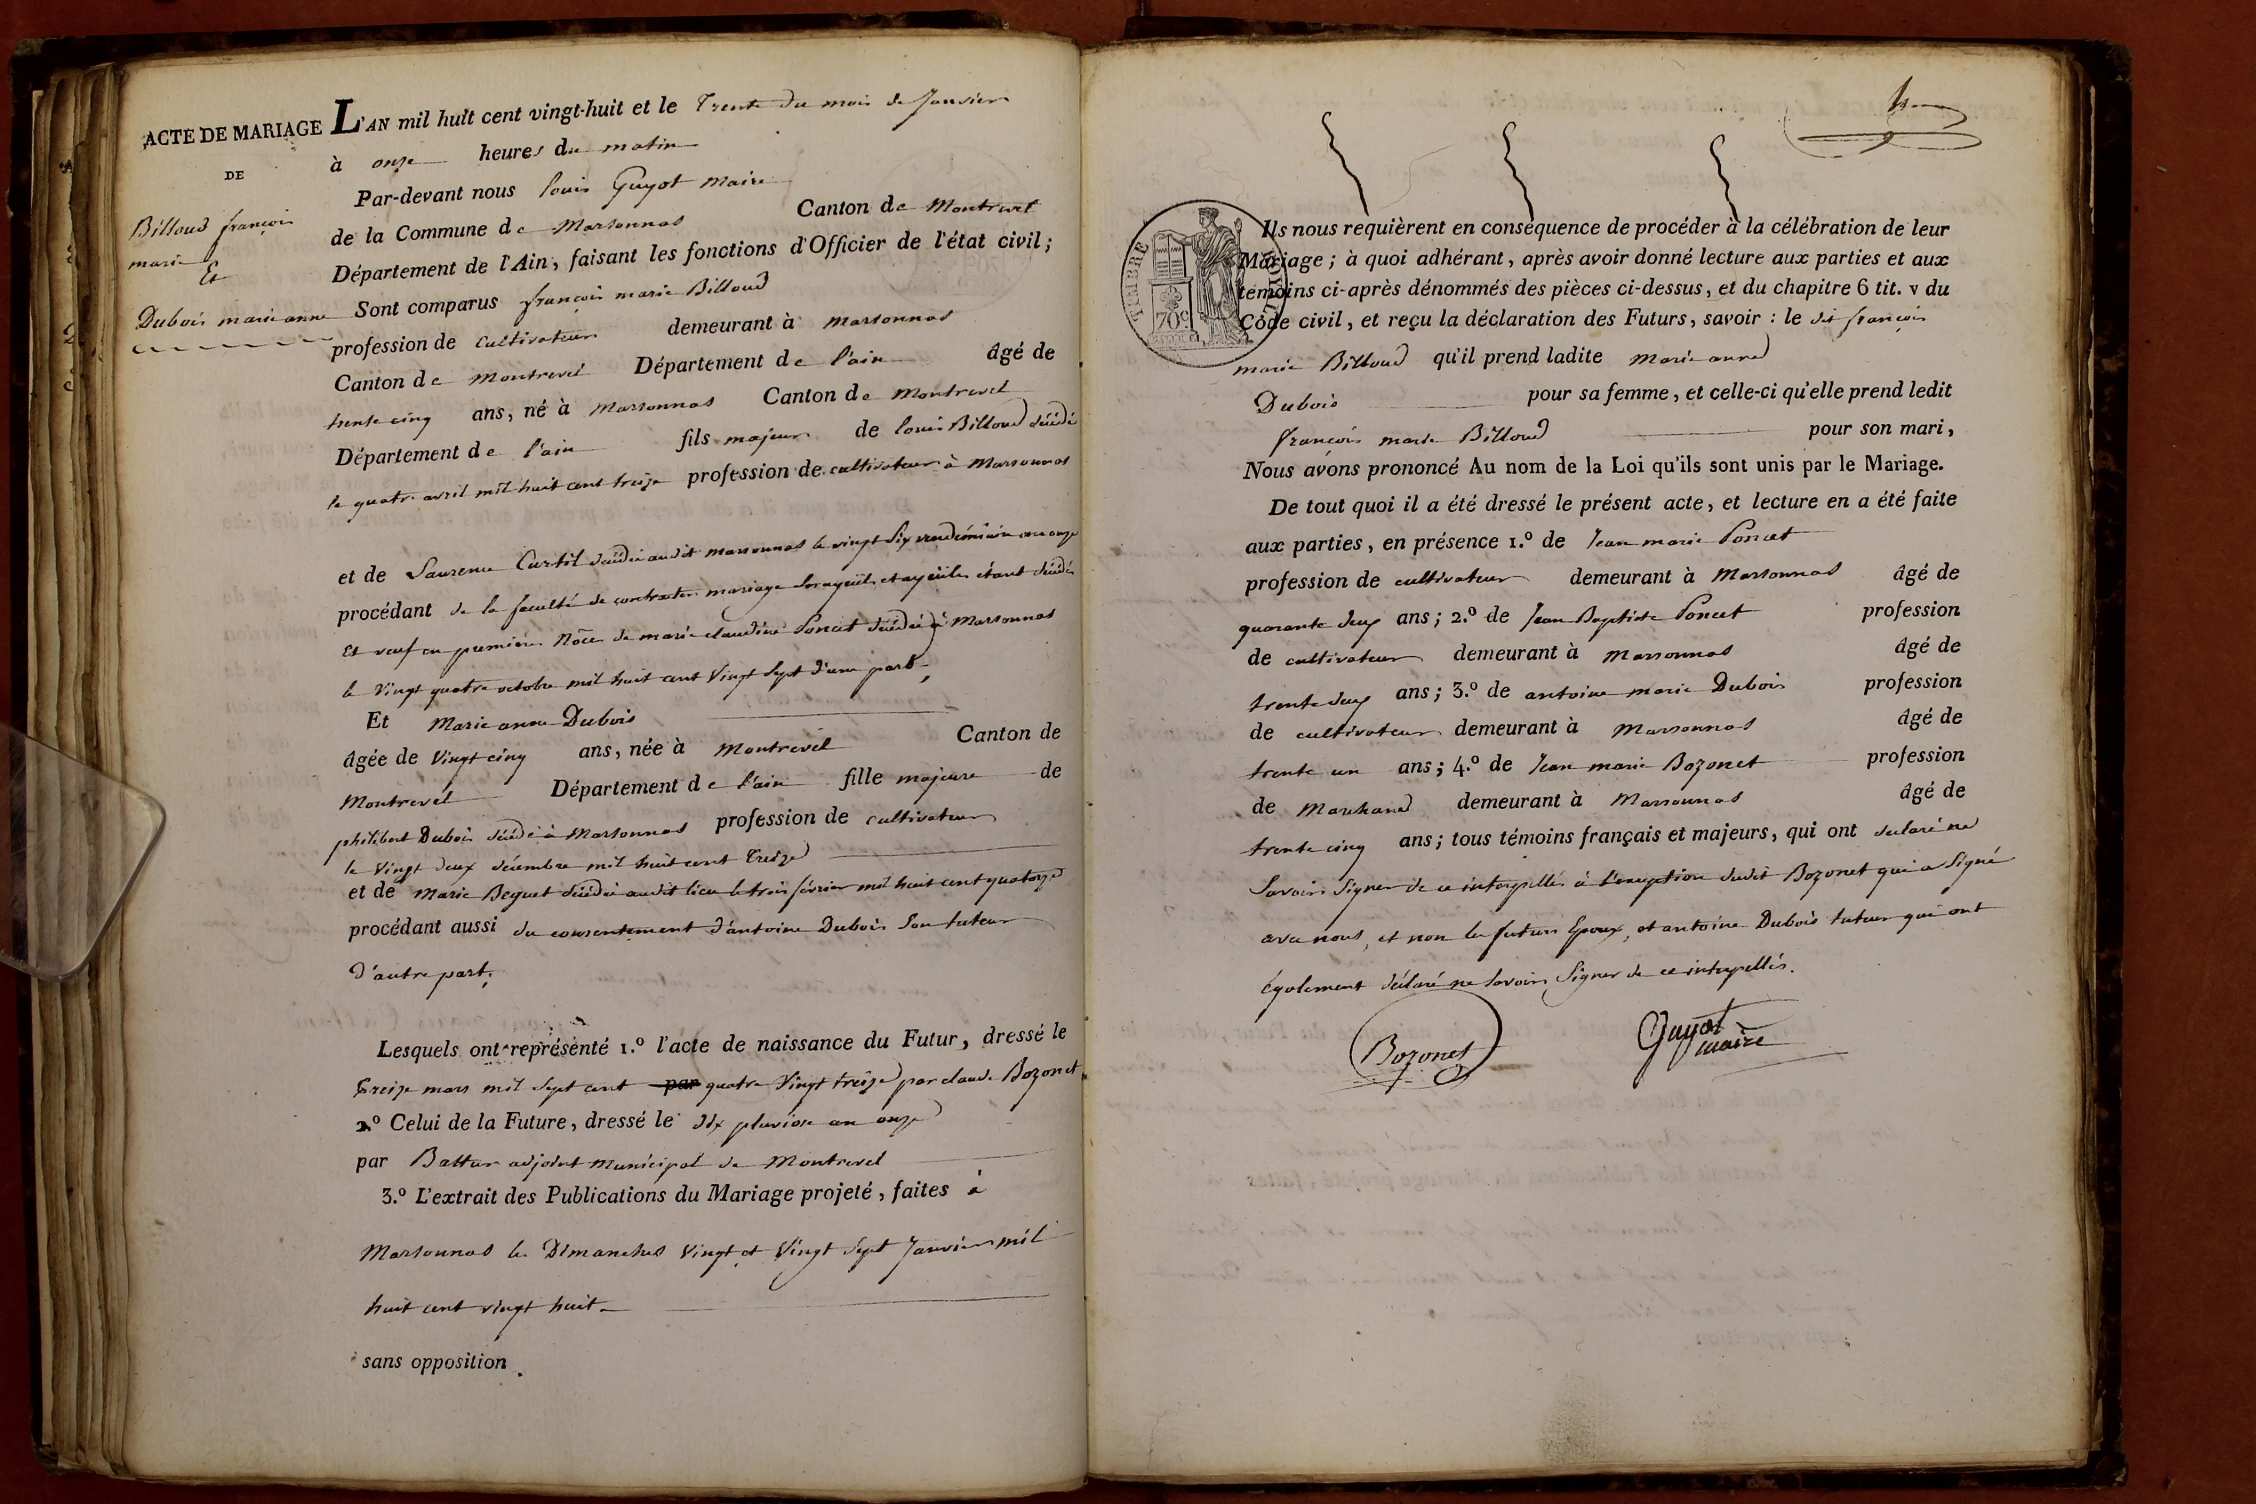 ACTE DE MARIAGE
DE
Billoud françois
marie
Et
Dubois marie anne
L'AN mil huit cent vingt-huit et le Trente du mois de Janvier
à onze heures du matin
Par-devant nous louis Guyot Maire
de la Commune de Marsonnas Canton de Montrevel
Département de l'Ain, faisant les fonctions d'Officier de l'état civil;
Sont comparus françois marie Billoud
profession de Cultivateur demeurant à Marsonnas
Canton de Montrevel Département de l'ain âgé de
trente cinq ans, né à Marsonnas Canton de Montrevel
Département de l'ain fils majeur de louis Billoud décédé
le quatre avril mil huit cent treize profession de cultivateur à Marsonnas
et de Laurence Curtil décédée audit marsonnas le vingt six vendémiaire an onze
procédant de la faculté de contracter mariage ses ayeuils et ayeuiles étant décédés
Et veuf en premières Nôces de marie claudine Poncet décédée à Marsonnas
le vingt quatre octobre mil huit cent vingt sept d'une part,
Et Marie anne Dubois
âgée de Vingt cinq ans, née à Montrevel Canton de
Montrevel Département de l'ain fille majeure de
philibert Dubois décédé à Marsonnas profession de cultivateur
le Vingt deux décembre mil huit cent treize
et de Marie Beguet décédée audit lieu le trois février mil huit cent quatorze
procédant aussi du consentement d'antoine Dubois son tuteur
d'autre part,
Lesquels ont représenté 1.º l'acte de naissance du Futur, dressé le
treize mars mil sept cent par quatre Vingt treize par claude Bozonet
2.º Celui de la Future, dressé le dix pluviose an onze
par Battur adjoint municipal de Montrevel
3.º L'extrait des Publications du Mariage projeté, faites à
Marsonnas les Dimanches Vingt et Vingt Sept Janvier mil
huit cent vingt huit
sans opposition.
TIMBRE ROYAL
70 c
Ils nous requièrent en conséquence de procéder à la célébration de leur
Mariage; à quoi adhérant, après avoir donné lecture aux parties et aux
témoins ci-après dénommés des pièces ci-dessus, et du chapitre 6 tit. v du
Code civil, et reçu la déclaration des Futurs, savoir: le dit françois
marie Billoud qu'il prend ladite marie anne
Dubois pour sa femme, et celle-ci qu'elle prend ledit
françois marie Billoud pour son mari,
Nous avons prononcé Au nom de la Loi qu'ils sont unis par le Mariage.
De tout quoi il a été dressé le présent acte, et lecture en a été faite
aux parties, en présence 1.º de Jean marie Poncet
profession de cultivateur demeurant à Marsonnas âgé de
quarante deux ans; 2.º de Jean Baptiste Poncet profession
de cultivateur demeurant à Marsonnas âgé de
trente deux ans; 3.º de antoine marie Dubois profession
de cultivateur demeurant à Marsonnas âgé de
trente un ans; 4.º de Jean marie Bozonet profession
de Marchand demeurant à Marsonnas âgé de
trente cinq ans; tous témoins français et majeurs, qui ont declaré ne
Savoir Signer de ce interpellés à l'exception dudit Bozonet qui a Signé
avec nous, et non les futurs Epoux, et antoine Dubois tuteur qui ont
également déclaré ne Savoir Signer de ce interpellés.
Bozonet
Guyot
maire